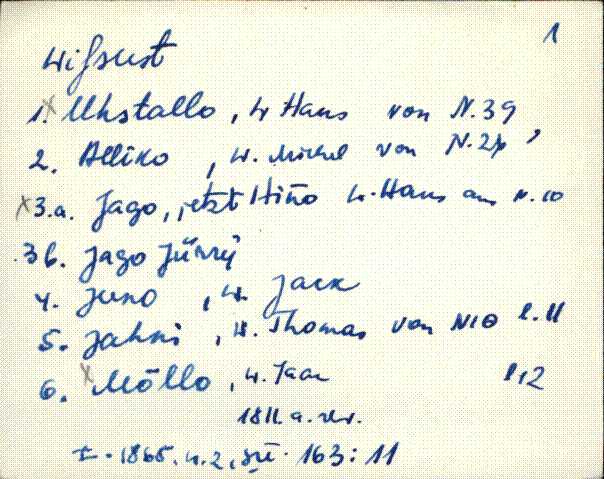 1
Wifsust
1. Uhstallo, W Hans von N. 39
2. Alliko, W. Michel von N. 24
3.a. Jago, jetzt Hino W. Hans aus N. 10
3b. Jago Jürry
4. Juno, W. Jack
5. Jahni, W. Thomas von N10 l. 11
6. Möllo, W. Jaan l. 12
1811. a. rev.
I. 1865. n. 2, 163: 11